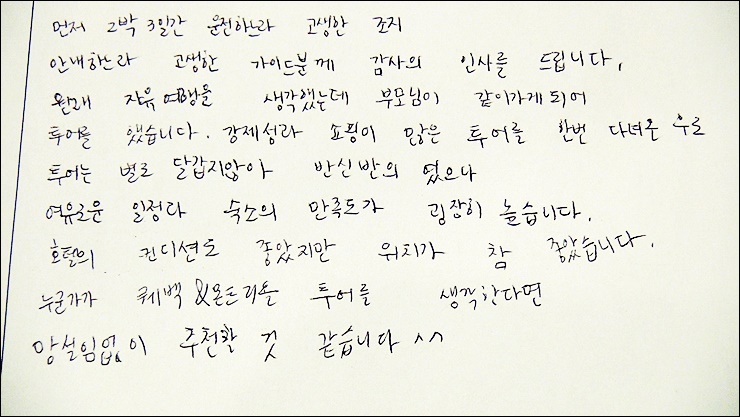 먼저 2박 3일간 운전하느라 고생한 조지
안내하느라 고생한 가이드분께 감사의 인사를 드립니다.
원래 자유여행을 생각했는데 부모님이 같이가게되어
투어를 했습니다. 강제성과 쇼핑이 많은 투어를 한번 다녀온 후로
투어는 별로 달갑지않아 반신반의 였으나
여유로운 일정과 숙소의 만족도가 굉장히 높습니다.
호텔의 컨디션도 좋았지만 위치가 참 좋았습니다.
누군가가 퀘백&몬트리올 투어를 생각한다면
망설임없이 추천할 것 같습니다 ^^